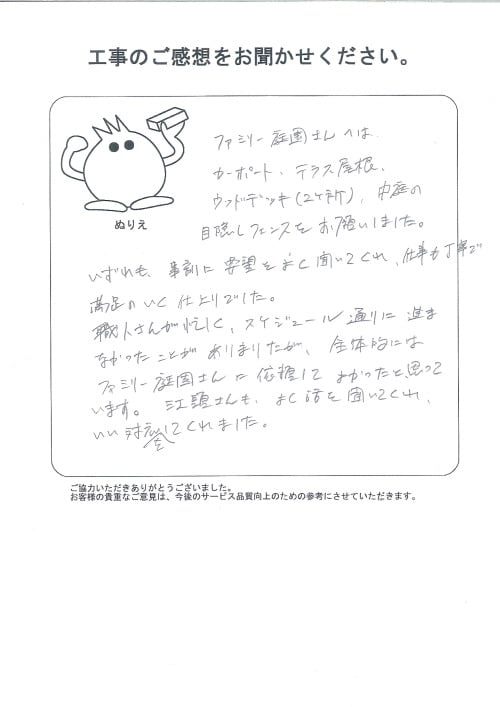 工事のご感想をお聞かせください。
ぬりえ
ファミリー庭園さんへは
カーポート、テラス屋根、
ウッドデッキ(2ヶ所)、中庭の
目隠しフェンスをお願いしました。
いずれも、事前に要望をよく聞いてくれ、仕事も丁寧で
満足のいく仕上りでした。
職人さんが忙しく、スケジュール通りに進ま
なかったことがありましたが、全体的には
ファミリー庭園さんに依頼してよかったと思って
います。江頭さんも、よく話を聞いてくれ、
いい対応してくれました。
ご協力いただきありがとうございました。
お客様の貴重なご意見は、今後のサービス品質向上のための参考にさせていただきます。